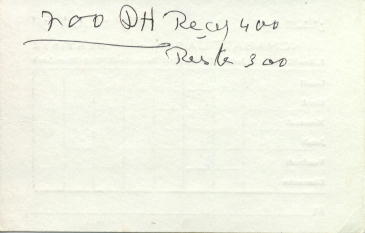 700 DH Reçu 400
Reste 300